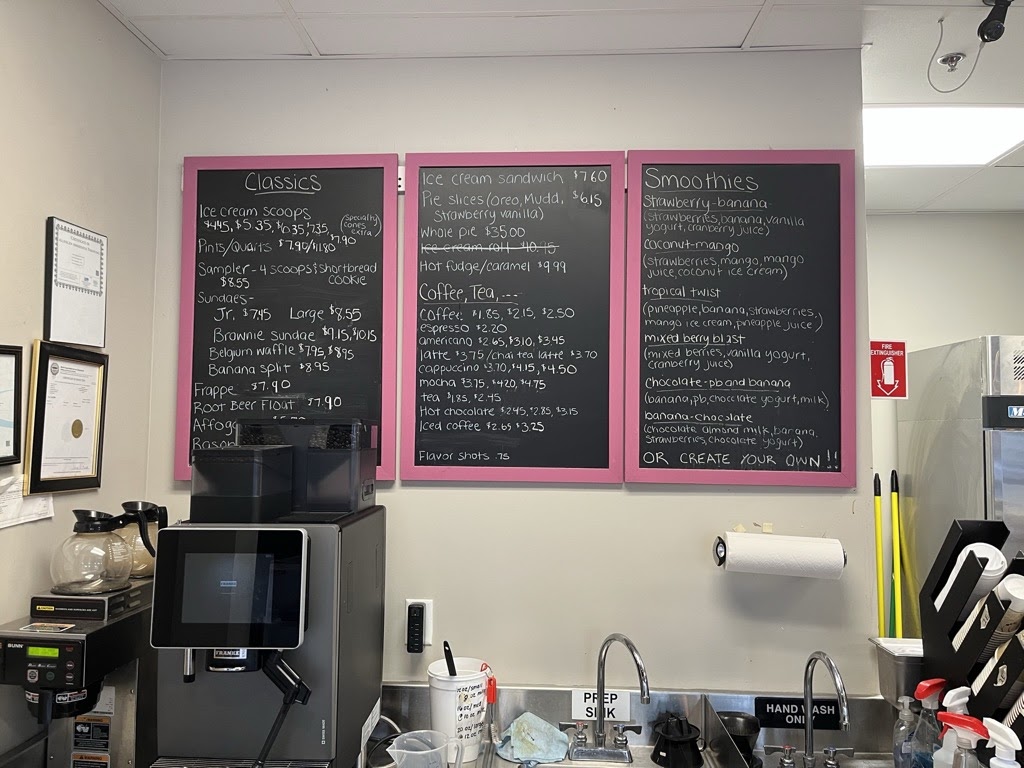 Classics
Ice cream scoops
$4.45, $5.35, $6.35, $7.35
(Specialty
cones
extra)
Pints/Quarts $7.90/$11.80
$7.90
Sampler - 4 scoops + shortbread
$8.55 COOKIE
Sundaes -
Jr. $7.45 Large $8.55
Brownie Sundae $9.15, $10.15
Belgium waffle $7.95, $8.95
Banana split $8.95
Frappe $7.90
Root Beer Float $7.90
Affog
Rasp
Ice cream sandwich $7.60
Pie slices (oreo, Mudd, $6.15
Strawberry vanilla)
Whole pie $35.00
Ice cream roll
Hot fudge/caramel $9.99
Coffee, Tea, ...
Coffee: $1.85, $2.15, $2.50
espresso $2.20
americano $2.65, $3.10, $3.45
latte $3.75 / chai tea latte $3.70
cappuccino $3.70, $4.15, $4.50
mocha $3.75, $4.20, $4.75
tea $1.85, $2.45
Hot chocolate $2.45, $2.85, $3.15
Iced coffee $2.65 $3.25
Flavor shots .75
Smoothies
Strawberry-banana-
(strawberries, banana, vanilla
yogurt, cranberry juice)
coconut-mango
(strawberries, mango, mango
juice, coconut ice cream)
tropical twist
(pineapple, banana, strawberries,
mango ice cream, pineapple juice)
mixed berry blast
(mixed berries, vanilla yogurt,
cranberry juice)
chocolate-pb and banana
(banana, pb, chocolate yogurt, milk)
banana-chocolate
(chocolate almond milk, banana,
strawberries, chocolate yogurt)
OR CREATE YOUR OWN !!
FIRE
EXTINGUISHER
BUNN
FRANKE
PREP
SINK
HAND WASH
ONLY